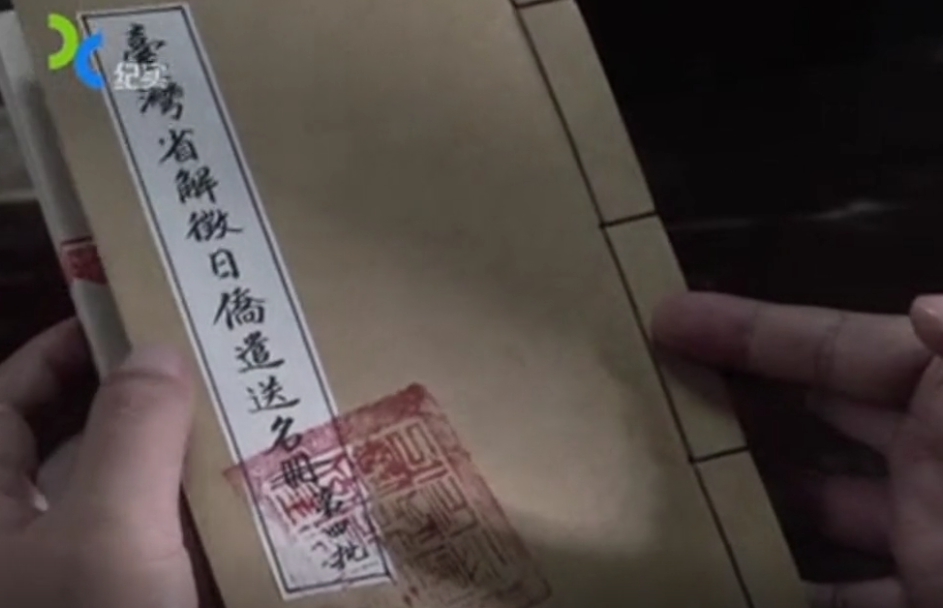 纪实
臺灣省解徵日僑遣送名冊第四批